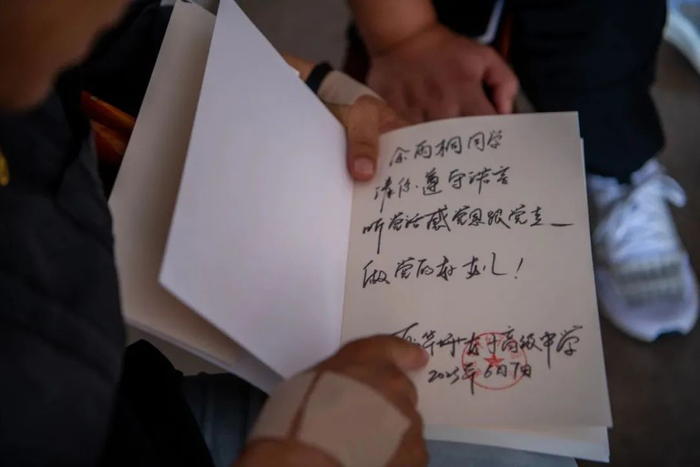 余雨桐同学
请你遵守诺言
听党话感党恩跟党走
做党的好女儿!
高级中学
2025年6月7日